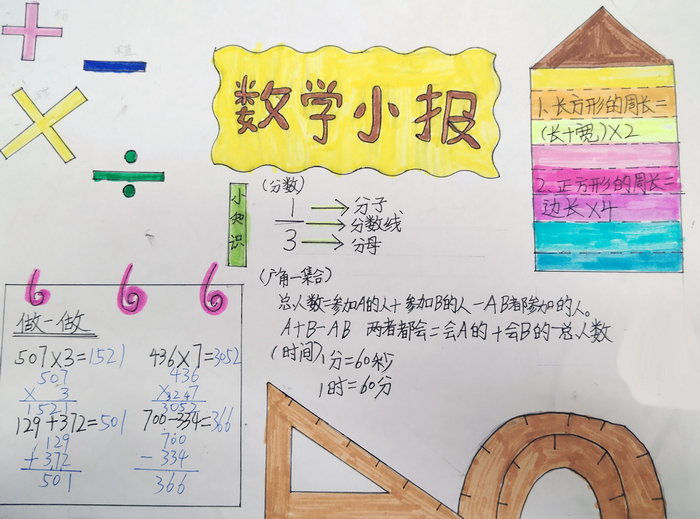 数学小报
1.长方形的周长=
(长+宽)×2
2.正方形的周长=
边长×4
小知识
(分数)
1
3
分子
分数线
分母
(广角—集合)
总人数=参加A的人+参加B的人-AB都参加的人。
A+B-AB 两者都会=会A的+会B的-总人数
(时间)1分=60秒
1时=60分
做一做
507×3=1521
507
× 3
1521
436×7=3052
436
3052
129+372=501
129
+372
501
700-334=366
700
-334
366